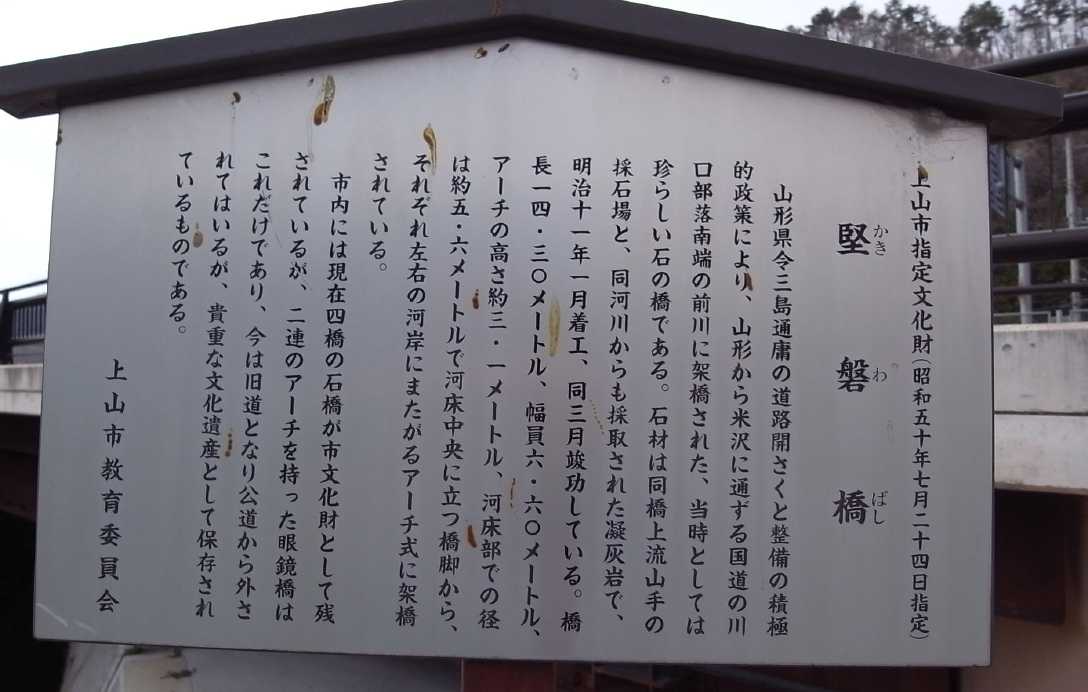 上山市指定文化財(昭和五十年七月二十四日指定)
堅磐橋
かきわばし
山形県令三島通庸の道路開さくと整備の積極
的政策により、山形から米沢に通ずる国道の川
口部落南端の前川に架橋された、当時としては
珍らしい石の橋である。石材は同橋上流山手の
採石場と、同河川からも採取された凝灰岩で、
明治十一年一月着工、同三月竣功している。橋
長一四・三〇メートル、幅員六・六〇メートル、
アーチの高さ約三・一メートル、河床部での径
は約五・六メートルで河床中央に立つ橋脚から、
それぞれ左右の河岸にまたがるアーチ式に架橋
されている。
市内には現在四橋の石橋が市文化財として残
されているが、二連のアーチを持った眼鏡橋は
これだけであり、今は旧道となり公道から外さ
れてはいるが、貴重な文化遺産として保存され
ているものである。
上山市教育委員会